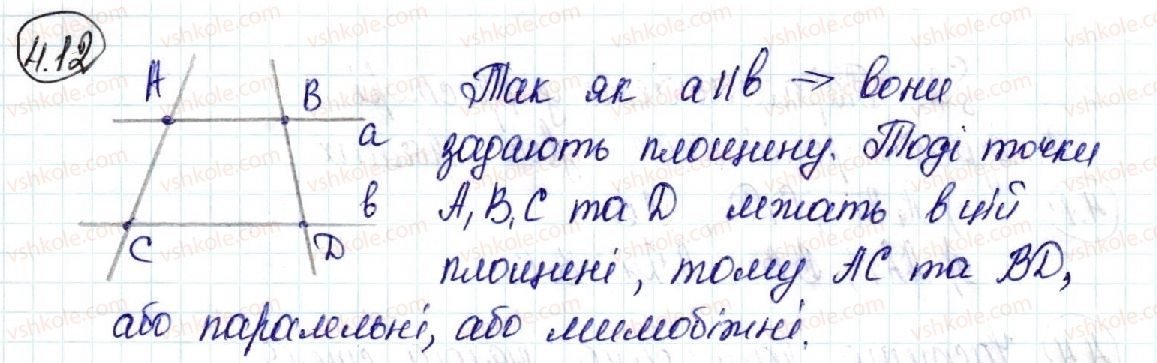 4.12
A B a
Так як a||b => вони
задають площину. Тоді точки
b
A, B, C та D лежать в цій
C D
площині, тому AC та BD,
або паралельні, або мимобіжні.
vshkole.com